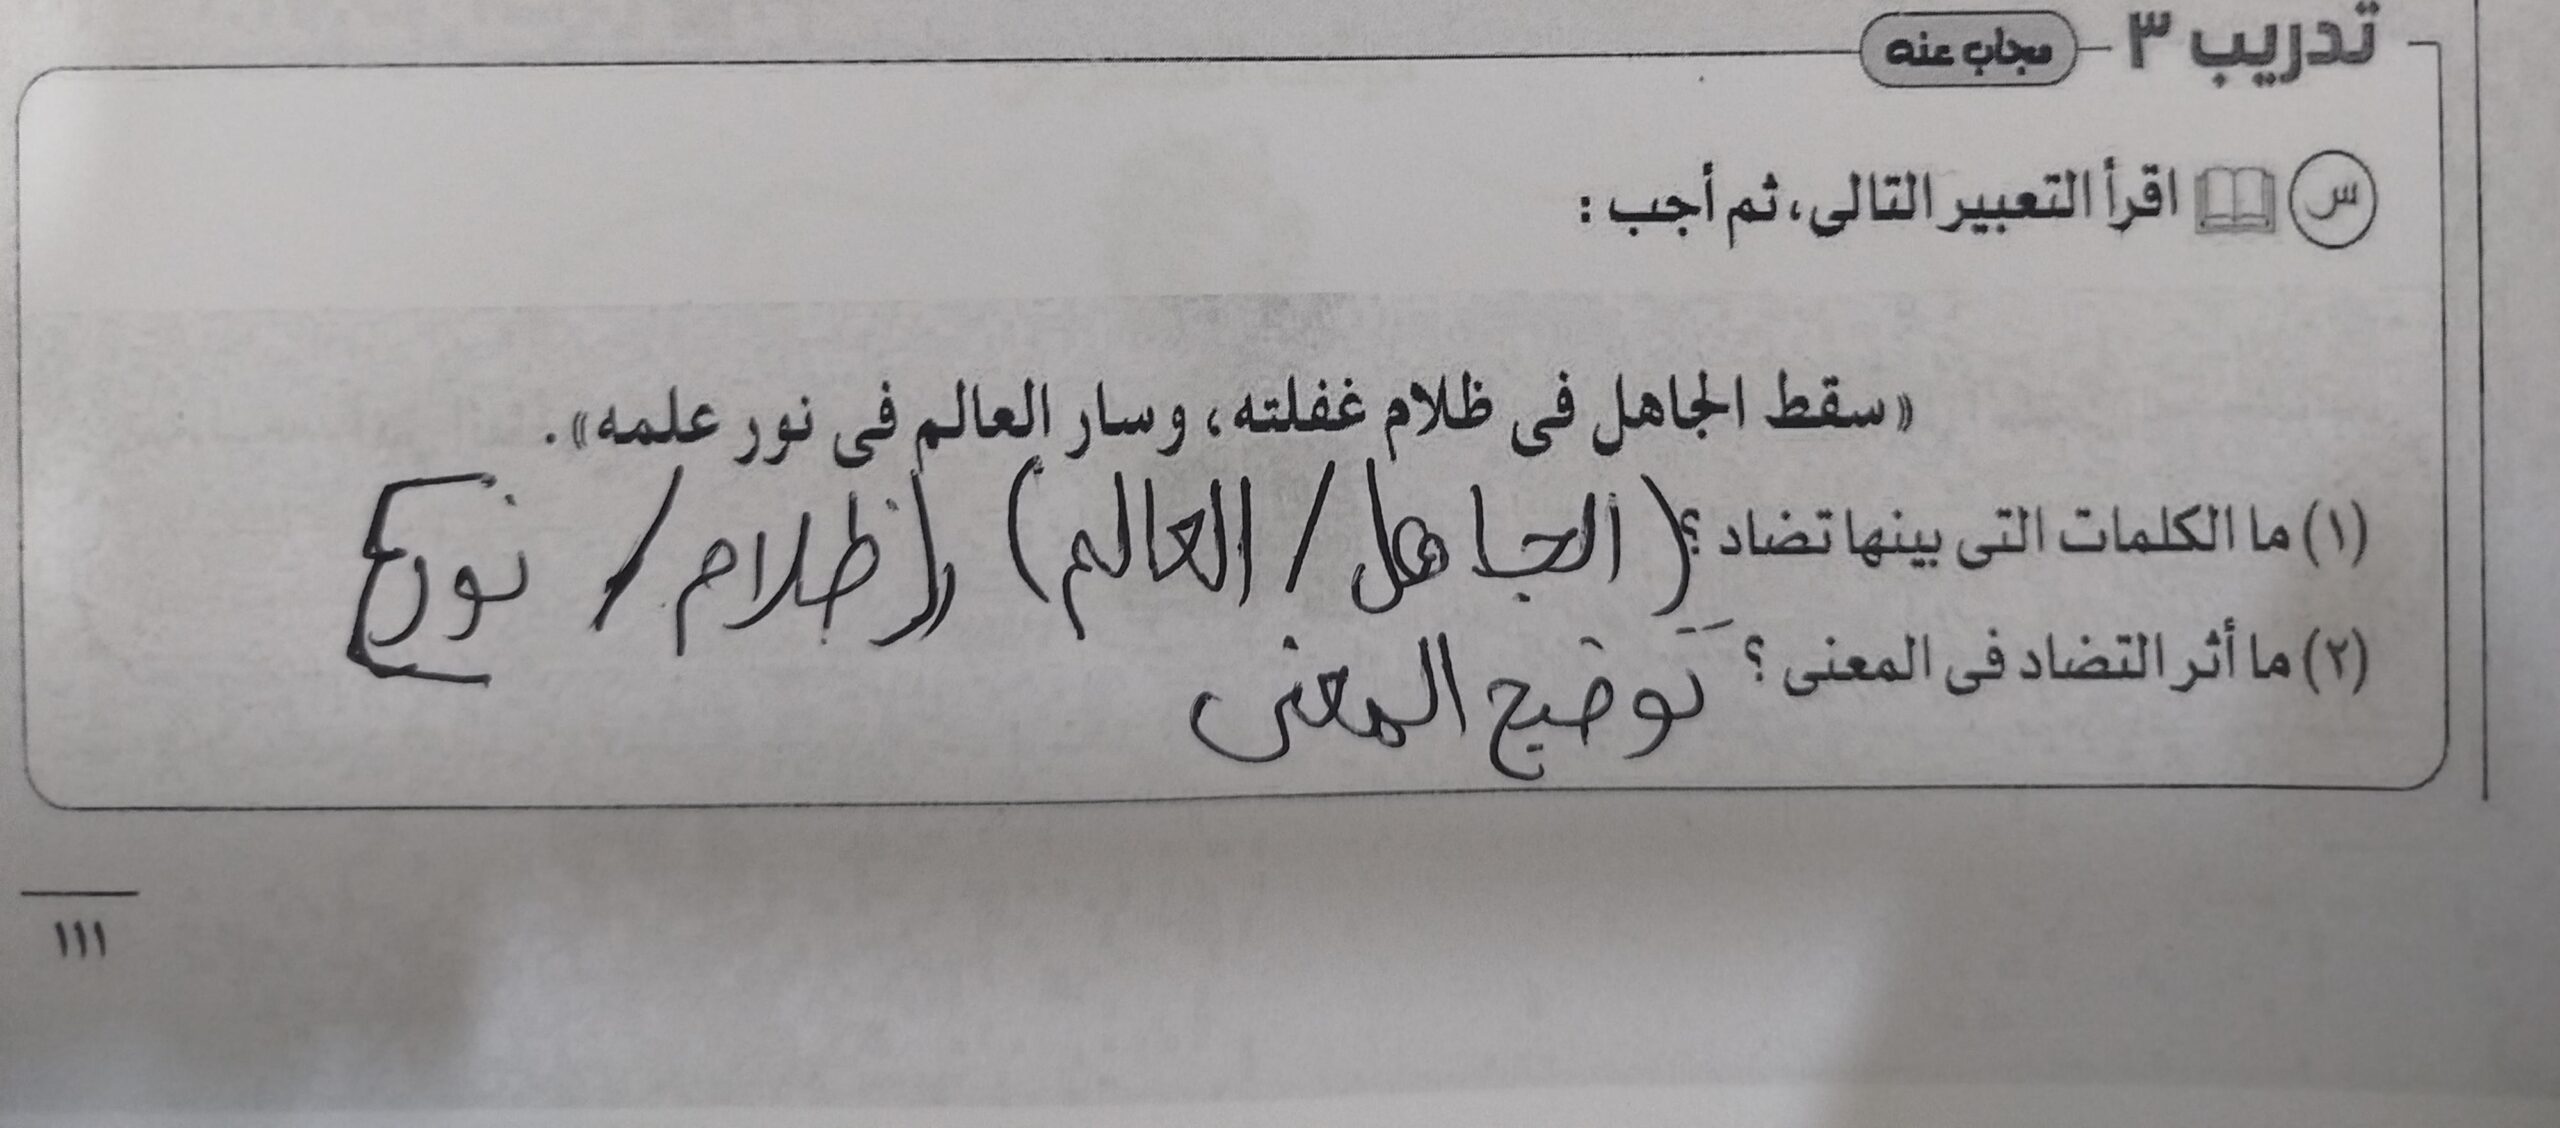 تدريب ٣ مجاب عنه
س اقرأ التعبير التالى، ثم أجب :
«سقط الجاهل فى ظلام غفلته، وسار العالم فى نور علمه».
(١) ما الكلمات التى بينها تضاد ؟ (الجاهل / العالم) و[ظلام / نور]
(٢) ما أثر التضاد فى المعنى ؟ توضيح المعنى
١١١